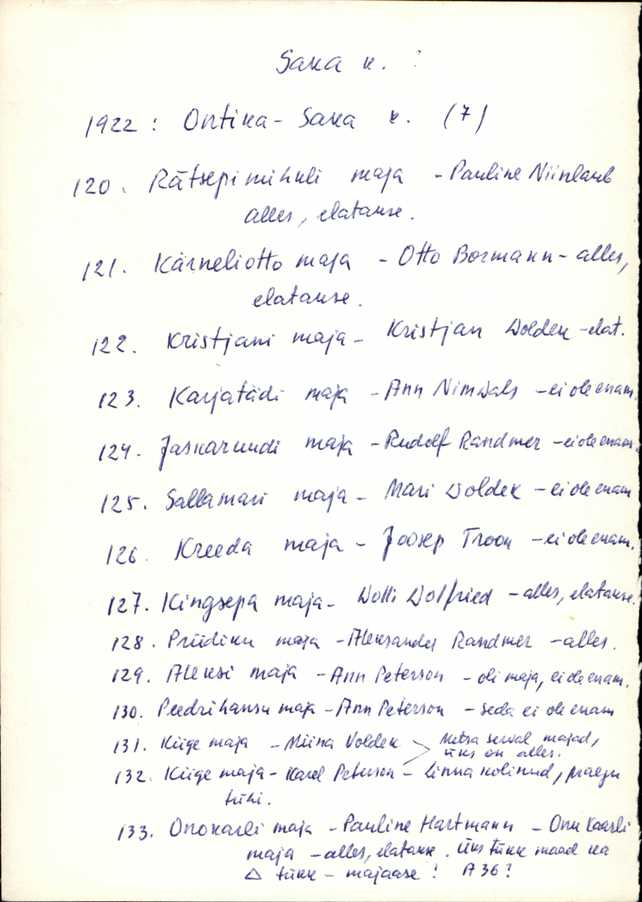 Saka k. ?
1922: Ontika-Saka k. (7)
120. Rätsepimihkli maja - Pauline Niinlaub
alles, elatakse.
121. Kärneliotto maja - Otto Bormann - alles,
elatakse.
122. Kristjani maja - Kristjan Woldek - elat.
123. Karjatädi maja - Ann Nimwals - ei ole enam.
124. Jaskaruudi maja - Rudolf Randmer - ei ole enam.
125. Sallamari maja - Mari Woldek - ei ole enam
126. Kreeda maja - Joosep Troon - ei ole enam.
127. Kingsepa maja - Wolli Wolfried - alles, elatakse.
128. Priidiku maja - Aleksander Randmer - alles.
129. Aleksi maja - Ann Peterson - oli maja, ei ole enam.
130. Peedrihansu maja - Ann Peterson - seda ei ole enam
131. Kiige maja - Miina Voldek Metsa serval majad,
üks on alles.
132. Kiige maja - Karel Peterson - linna kolinud, praegu
tühi.
133. Onokarli maja - Pauline Hartmann - Onu Kaarli
maja - alles, elatakse. Üks tükk maad ka
△ tükk - majaase? A36?